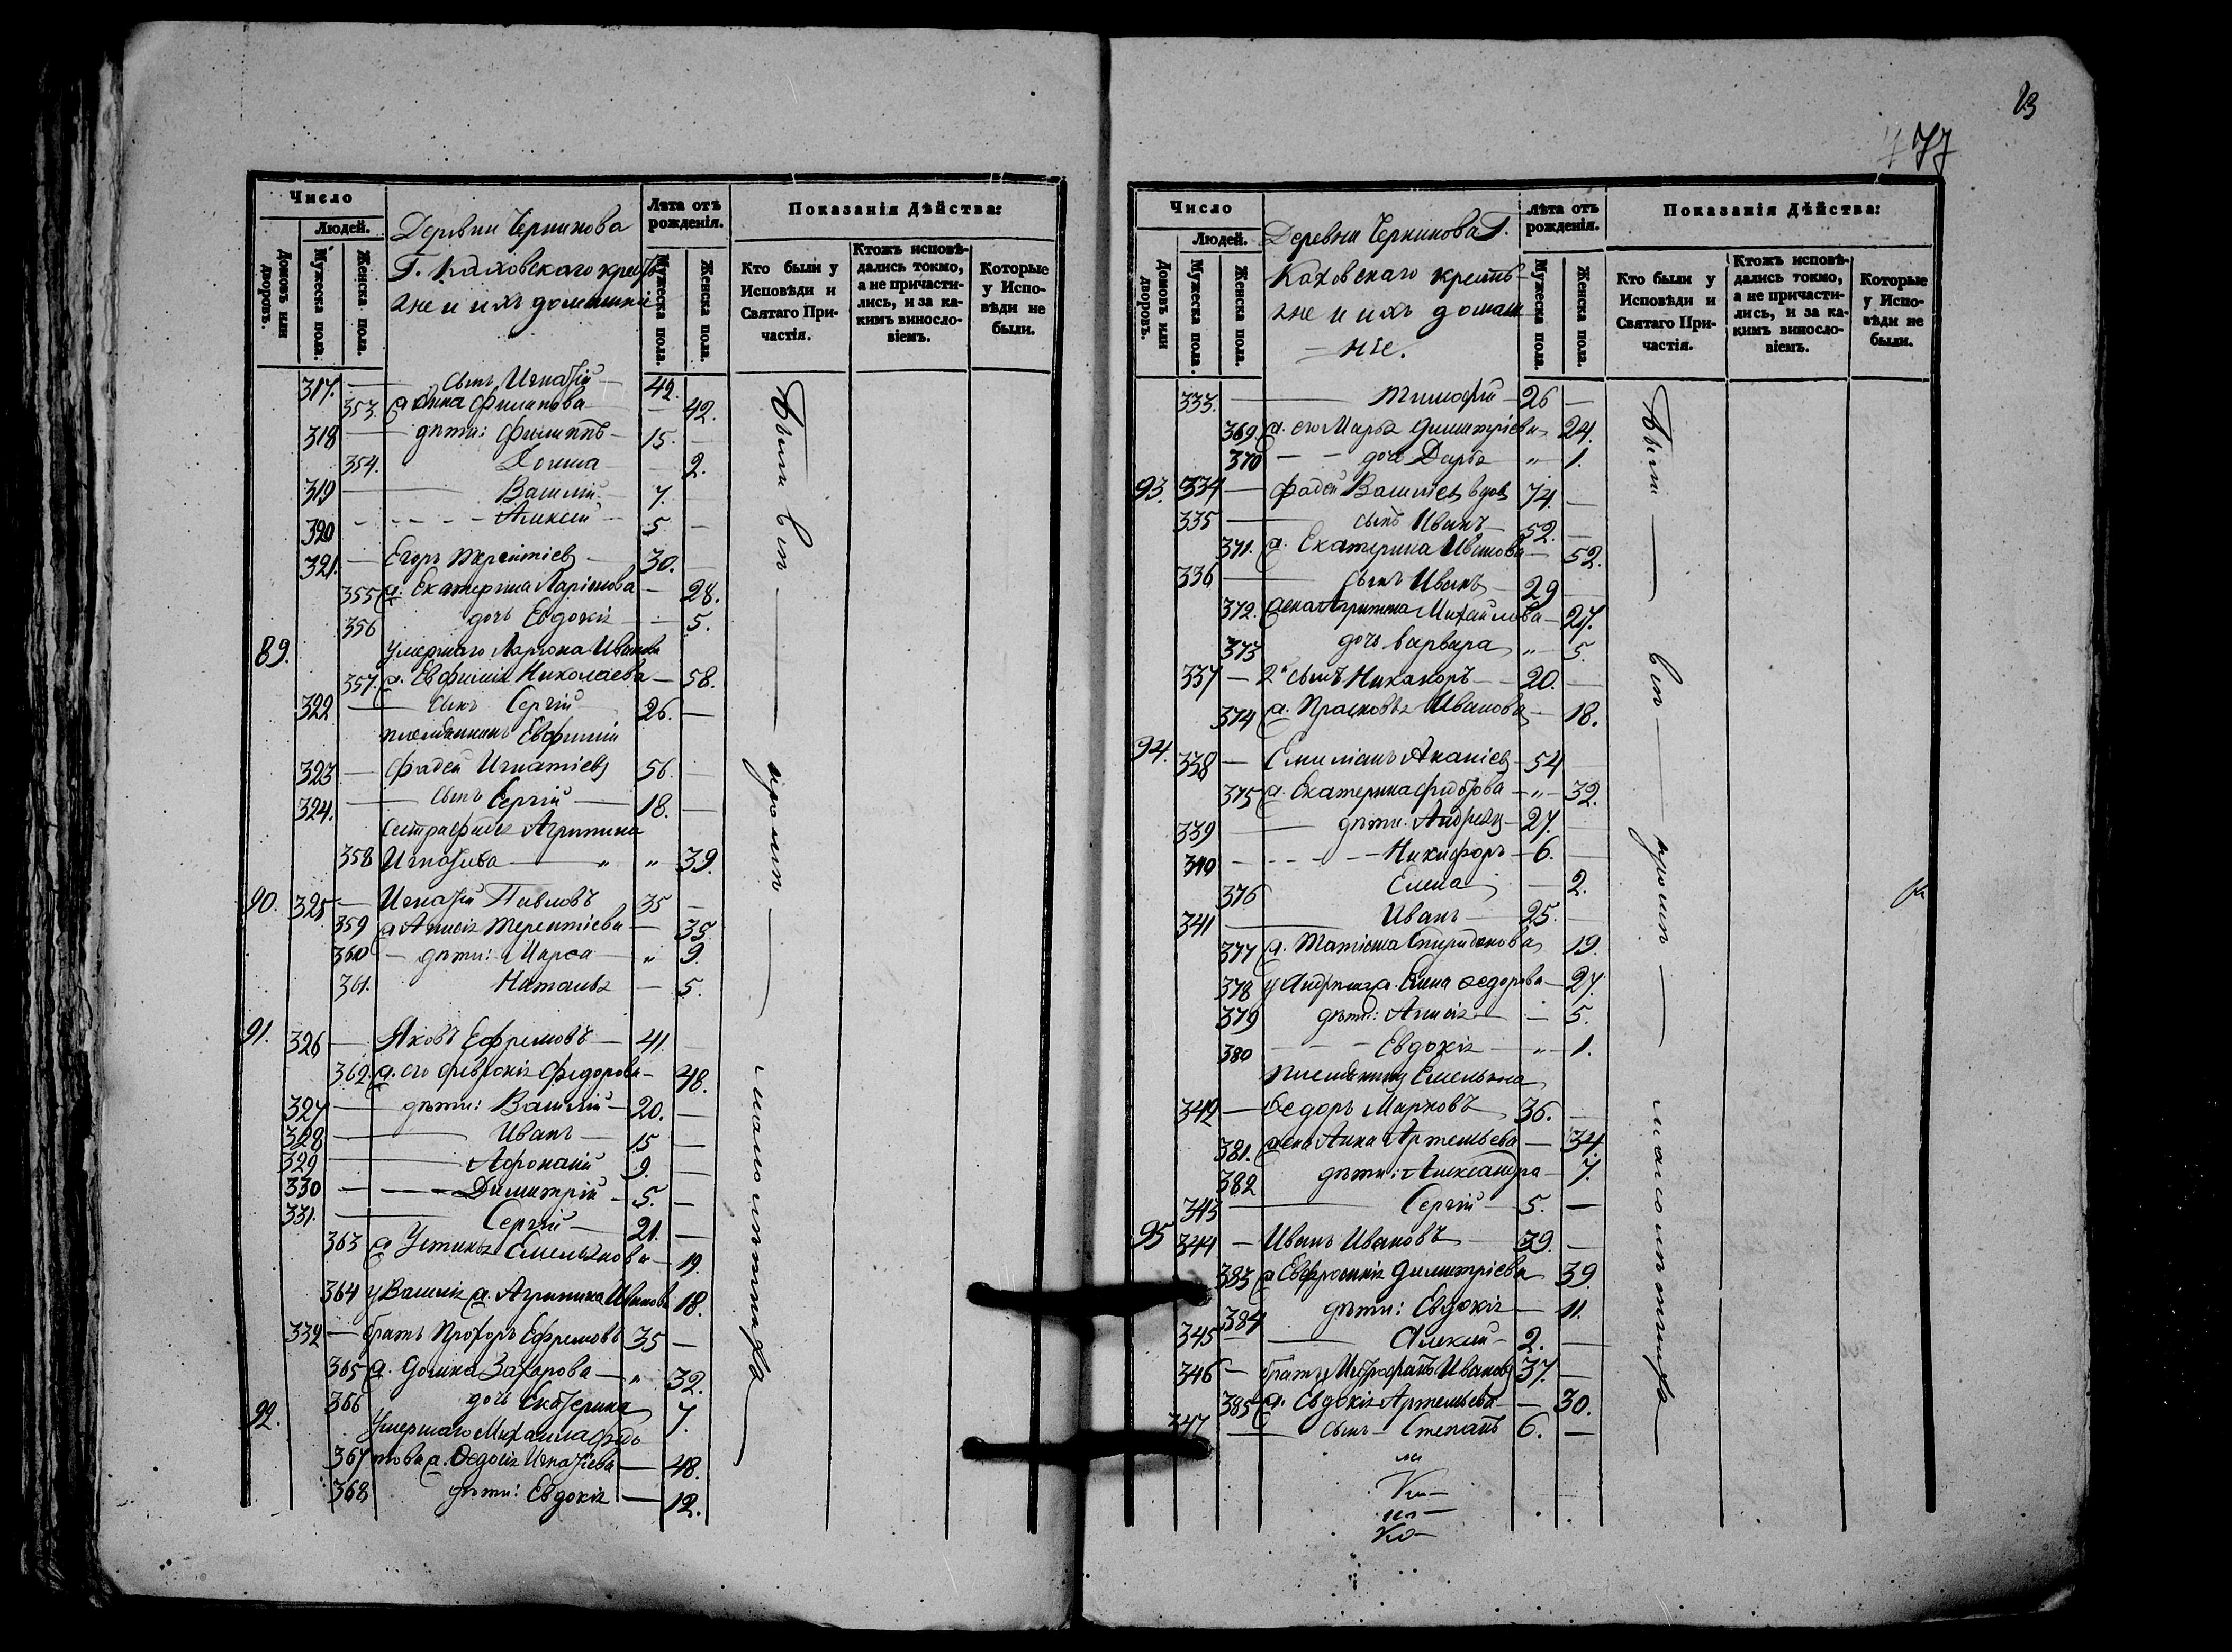 Число
Людей.
Домовъ или дворовъ.
Мужеска пола.
Женска пола.
Деревни Черникова
Г. Каховскаго кресть
яне и ихъ домашни
Лѣта отъ рожденія.
Мужеска пола.
Женска пола.
Показанія Дѣйства:
Кто были у Исповѣди и Святаго При-частія.
Ктожъ исповѣ-дались токмо, а не причасти-лись, и за ка-кимъ винословіемъ.
Которые у Испо-вѣди не были.
317. — сынъ Игнатій — 42.
353. Филипова — 42.
318 — дѣти: Филиппъ — 15. —
354. Домна — 2.
319 — Василій — 7.
320 - - - - Алексій — 5 —
321. — Егоръ Терентіевъ — 30.
355 а. Екатерина Ларіонова — 28.
356 дочь Евдокія — 5.
89. умершаго Ларіона Иванова
357. а. Евфимія Николаева — 58.
322 — сынъ Сергій 26. —
племянникъ Евфиміи
323 — Фадей Игнатіевъ 56. —
324. — сынъ Сергій — 18. —
сестра Фадея Агрипина
358 Игнатіева — " " 39.
90. 325 — Игнатій Павловъ 35 —
359 а Анисія Терентіева — 35.
360 — дѣти: Марѳа — " 9.
361. Наталья — 5.
91. 326 — Яковъ Ефремовъ — 41. —
362. а. его Федорова — 48.
327 — дѣти: Василій — 20. —
328 — Иванъ — 15 —
329 — Афонасій 9. —
330 — Димитрій — 5. —
331. — Сергій — 21. —
363 а Устинья Емельянова — 19.
364 у Василія а. Агрипина Иванова 18.
332 — братъ Прохоръ Ефремовъ 35 —
365 а. Домна Захарова — " 32.
366 дочь Екатерина 7.
92. Умершаго Михаила
367 а. Ѳедосія Игнатіева — 48.
368 дѣти: Евдокія — 12.
Были
23
477
Число
Людей.
Домовъ или дворовъ.
Мужеска пола.
Женска пола.
Деревни Черникова Г.
Каховскаго кресть-
яне и ихъ домаш
— ніе.
Лѣта отъ рожденія.
Мужеска пола.
Женска пола.
Показанія Дѣйства:
Кто были у Исповѣди и Святаго При-частія.
Ктожъ исповѣ-дались токмо, а не причасти-лись, и за ка-кимъ винословіемъ.
Которые у Испо-вѣди не были.
333. — Тимофей — 26 —
369. а. его Марья Димитріева 24.
370 — — дочь Дарья " 1.
93. 334 — Фадей Василіевъ вдов 74. —
335 — сынъ Иванъ — 52. —
371. а. Екатерина Иванова — 52.
336 — сынъ Иванъ — 29 —
372. жена Агрипина Михайлова — 27.
373 дочь Варвара " 5.
337 — 2й сынъ Никаноръ — 20. —
374 а. Прасковья Иванова — 18.
94. 338 — Емиліанъ Ананіевъ — 54
375 а. Екатерина — " — 32.
339 — дѣти. Андрей — 27. —
340 - - - - Никифоръ — 6. —
376 Елена — 2.
341 — Иванъ — 25. —
377 а. Татіана Спиридонова 19.
378 у Андрея а. Елена Ѳедорова — 27.
379 дѣти: Анисія — 5.
380 — — — Евдокія — " 1.
племянникъ Емельяна
342 — Ѳедоръ Марковъ 36. —
381. жена Анна Артемьева — 34.
382 дѣти: Александра — 7.
343 — Сергій — 5. —
95 344 — Иванъ Ивановъ 39. —
383 а Евфросинія Димитріева 39
384 дѣти: Евдокія — 11.
345 — Алексій — 2. —
346 — братъ Митрофанъ Ивановъ 37. —
385 а. Евдокія Артемьева — 30.
347 — сынъ Степанъ 6. —
Были